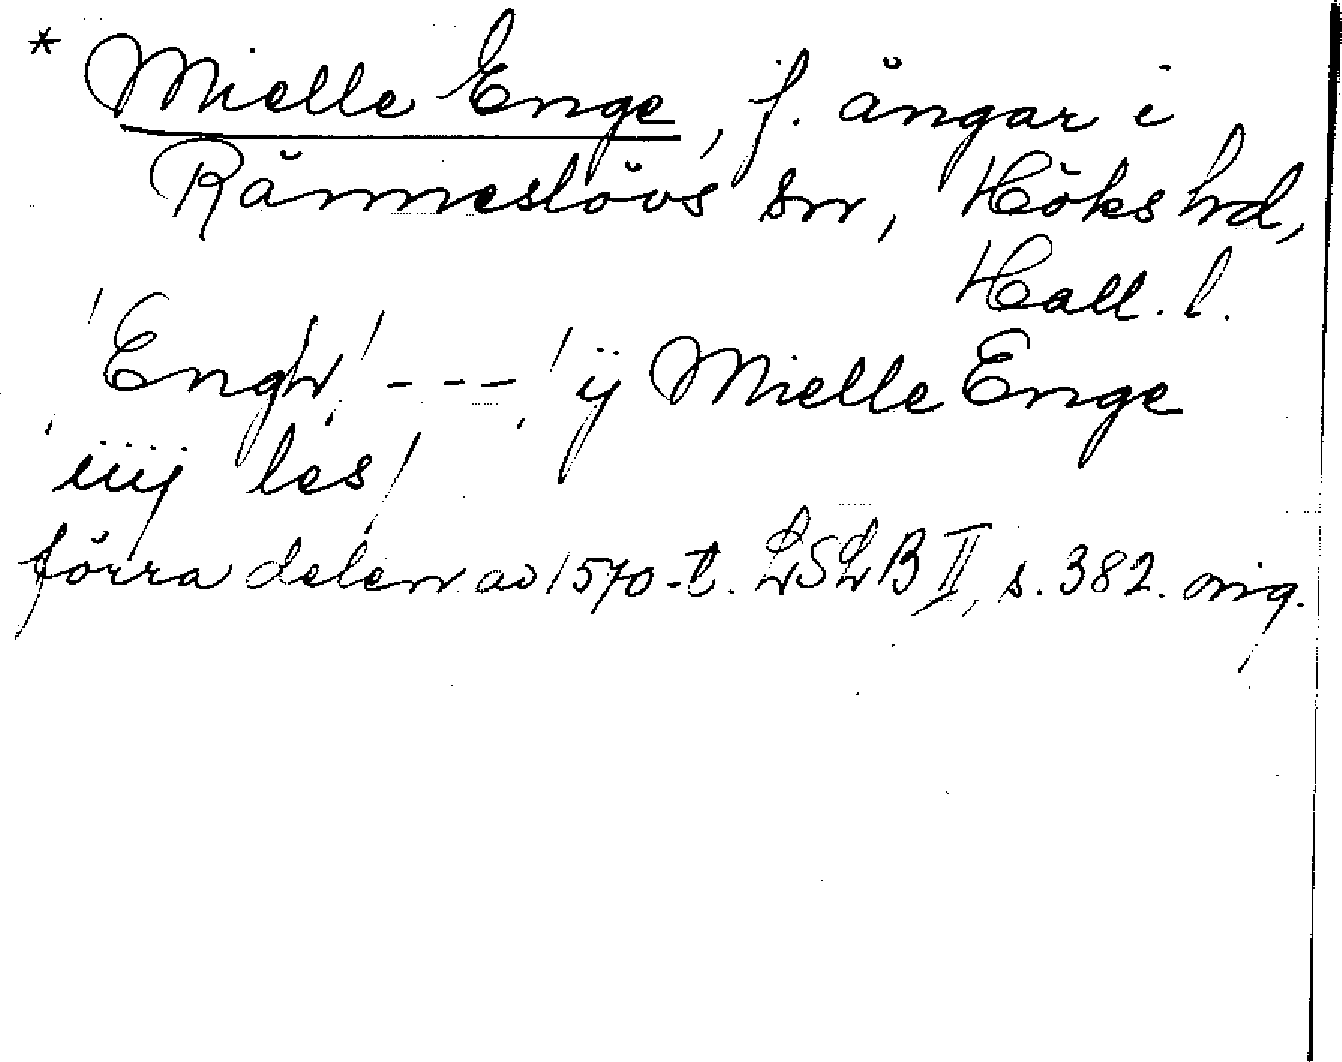 * Mielle Enge, f. ängar i
Ränneslövs sn, Höks hd,
Hall. l.
'Engh' --- 'ij Mielle Enge
iiij les'
förra delen av 1570-t. LSLB II, s. 382. orig.